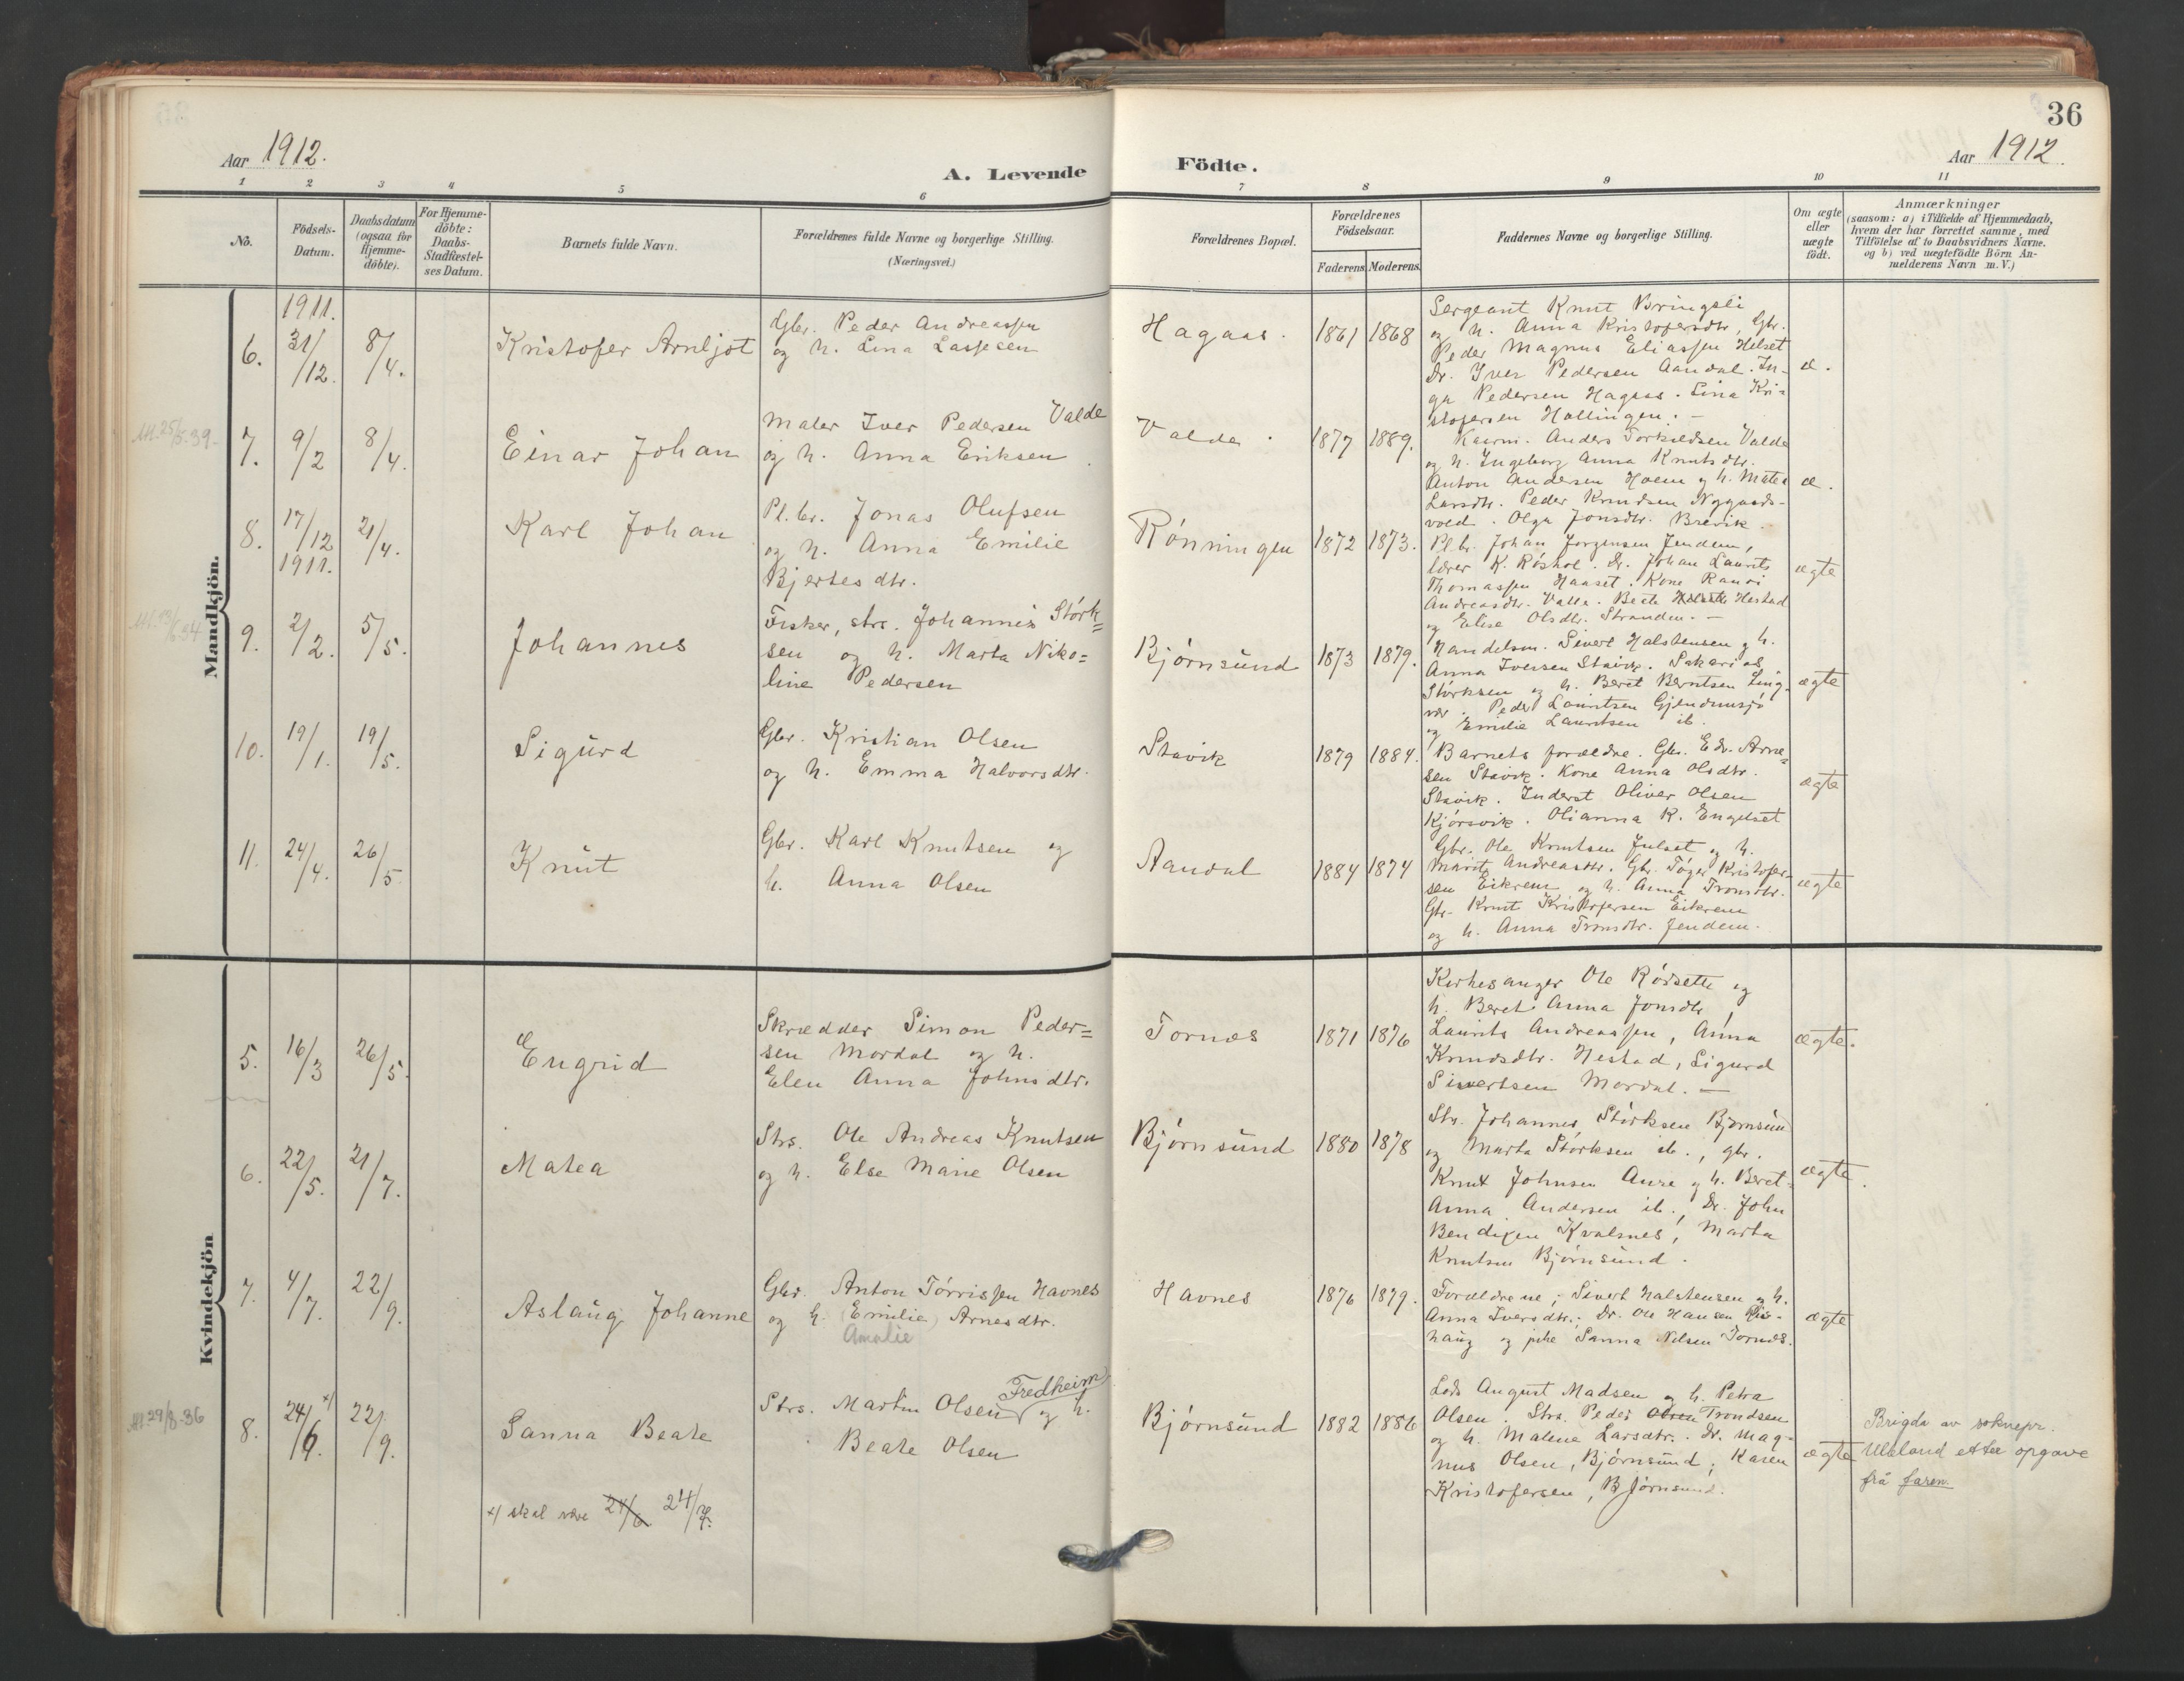 36
Aar 1912.
A. Levende
Födte.
Aar 1912.
1 2 3 4 5 6 7 8 9 10 11
No.
Födsels-
Datum.
Daabsdatum
(ogsaa for
Hjemme-
döbte).
For Hjemme-
döbte:
Daabs-
Stadfæstel-
ses Datum.
Barnets fulde Navn.
Forældrenes fulde Navne og borgerlige Stilling.
(Næringsvei.)
Forældrenes Bopæl.
Forældrenes
Födselsaar.
Faderens. Moderens.
Faddernes Navne og borgerlige Stilling.
Om ægte
eller
uægte
födt.
Anmærkninger
(saasom: a) i Tilfælde af Hjemmedaab,
hvem der har forrettet samme, med
Tilföielse af to Daabsvidners Navne.
og b) ved uægtefödte Börn An-
melderens Navn m. V.)
Mandkjön.
6.
1911.
31/12.
8/4.
Kristofer Arnljot
Gbr. Peder Andreassen
og h. Lina Lassesen
Hagaas.
1861 1868
Sergeant Knut Bringsli
og h. Anna Kristofersdtr, Gbr.
Peder Magnus Eliassen Helset
Dr. Iver Pedersen Aandal. In-
ga Pedersen Hagaas. Lina Kri-
stofersen Hollingen. –
æ.
7.
9/2
8/4.
Einar Johan
Maler Iver Pedersen Valde
og h. Anna Eriksen
Valde.
1877 1889.
Kaarm. Anders Torkildsen Valde
og h. Ingeborg Anna Knutsdtr.
Anton Andersen Hoem og h. Matea
Larsdtr. Peder Knudsen Nygaards-
vold. Olga Jonsdtr. Brevik.
æ.
8.
17/12
1911.
21/4.
Karl Johan
Pl.br. Jonas Olufsen
og h. Anna Emilie
Bjertesdtr.
Rønningen
1872 1873.
Pl.br. Johan Jørgensen Jendem,
lærer K. Røshol. Dr. Johan Laurits
Thomassen Haaset. Kone Randi
Andreasdtr. Valle. Beate Hestad
og Elise Olsdtr. Stranden. –
ægte
9.
2/2.
5/5.
Johannes
Fisker, strs. Johannes Størk=
sen og h. Marta Niko=
line Pedersen
Bjørnsund
1873 1879.
Handelsm. Sivert Halstensen og h.
Anna Iversen Stavik. Sakarias
Størksen og h. Beret Berntsen Ling-
vær. Peder Lauritsen Gjendemsjø
og Emilie Lauritsen ib.
ægte
10.
19/1.
19/5.
Sigurd
Gbr. Kristian Olsen
og h. Emma Halvorsdtr.
Stavik
1879 1884.
Barnets forældre. Gbr. Edv. Arne=
sen Stavik. Kone Anna Olsdtr.
Stavik. Inderst Oliver Olsen
Kjørsvik. Olianna K. Engelset
ægte
11.
24/4.
26/5
Knut
Gbr. Karl Knutsen og
h. Anna Olsen
Aandal
1884 1874
Gbr. Ole Knutsen Julset og h.
Marit Andreasdtr. Gbr. Tøger Kristofer-
sen Eikrem og h. Anna Tronsdtr.
Gbr. Knut Kristofersen Eikrem
og h. Anna Tronsdtr. Jendem.
ægte
Kvindekjön
5.
16/3
26/5.
Engrid
Skrædder Simon Peder=
sen Mordal og h.
Elen Anna Johnsdtr.
Tornes
1871 1876
Kirkesanger Ole Rødsette og
h. Beret Anna Jonsdtr,
Laurits Andreassen, Anna
Knudsdtr. Hestad, Sigurd
Sivertsen Mordal. –
ægte.
6.
22/5.
21/7.
Matea
Strs. Ole Andreas Knutsen
og h. Else Marie Olsen
Bjørnsund
1880 1878
Strs. Johannes Størksen Bjørnsund
og Marta Størksen ib., gbr.
Knut Johnsen Aure og h. Beret-
Anna Andersen ib., Dr. John
Bendixen Kvalsnes, Marta
Knutsen Bjørnsund.
ægte.
7.
4/7.
22/9.
Aslaug Johanne
Gbr. Anton Tørrissen Havnes
og h. (Emilie) Arnesdtr.
Amalie
Havnes
1876 1879.
Forældrene; Sivert Halstensen og h.
Anna Iversdtr.; Dr. Ole Hansen Ris-
haug og pike Sanna Nilsen Tornes.
ægte
29/8-36
8.
24/6. x)
22/9.
Sanna Beate
Strs. Martin Olsen Fredheim og h.
Beate Olsen
Bjørnsund
1882 1886
Lods August Madsen og h. Petra
Olsen. Strs. Peder Olsen Trondsen
og h. Malene Larsdtr. Dr. Mag-
nus Olsen, Bjørnsund; Karen
Kristofersen, Bjørnsund.
ægte
Brigda av soknepr.
Ulaland etter opgave
frå faren.
x) skal være 24/6 24/7.